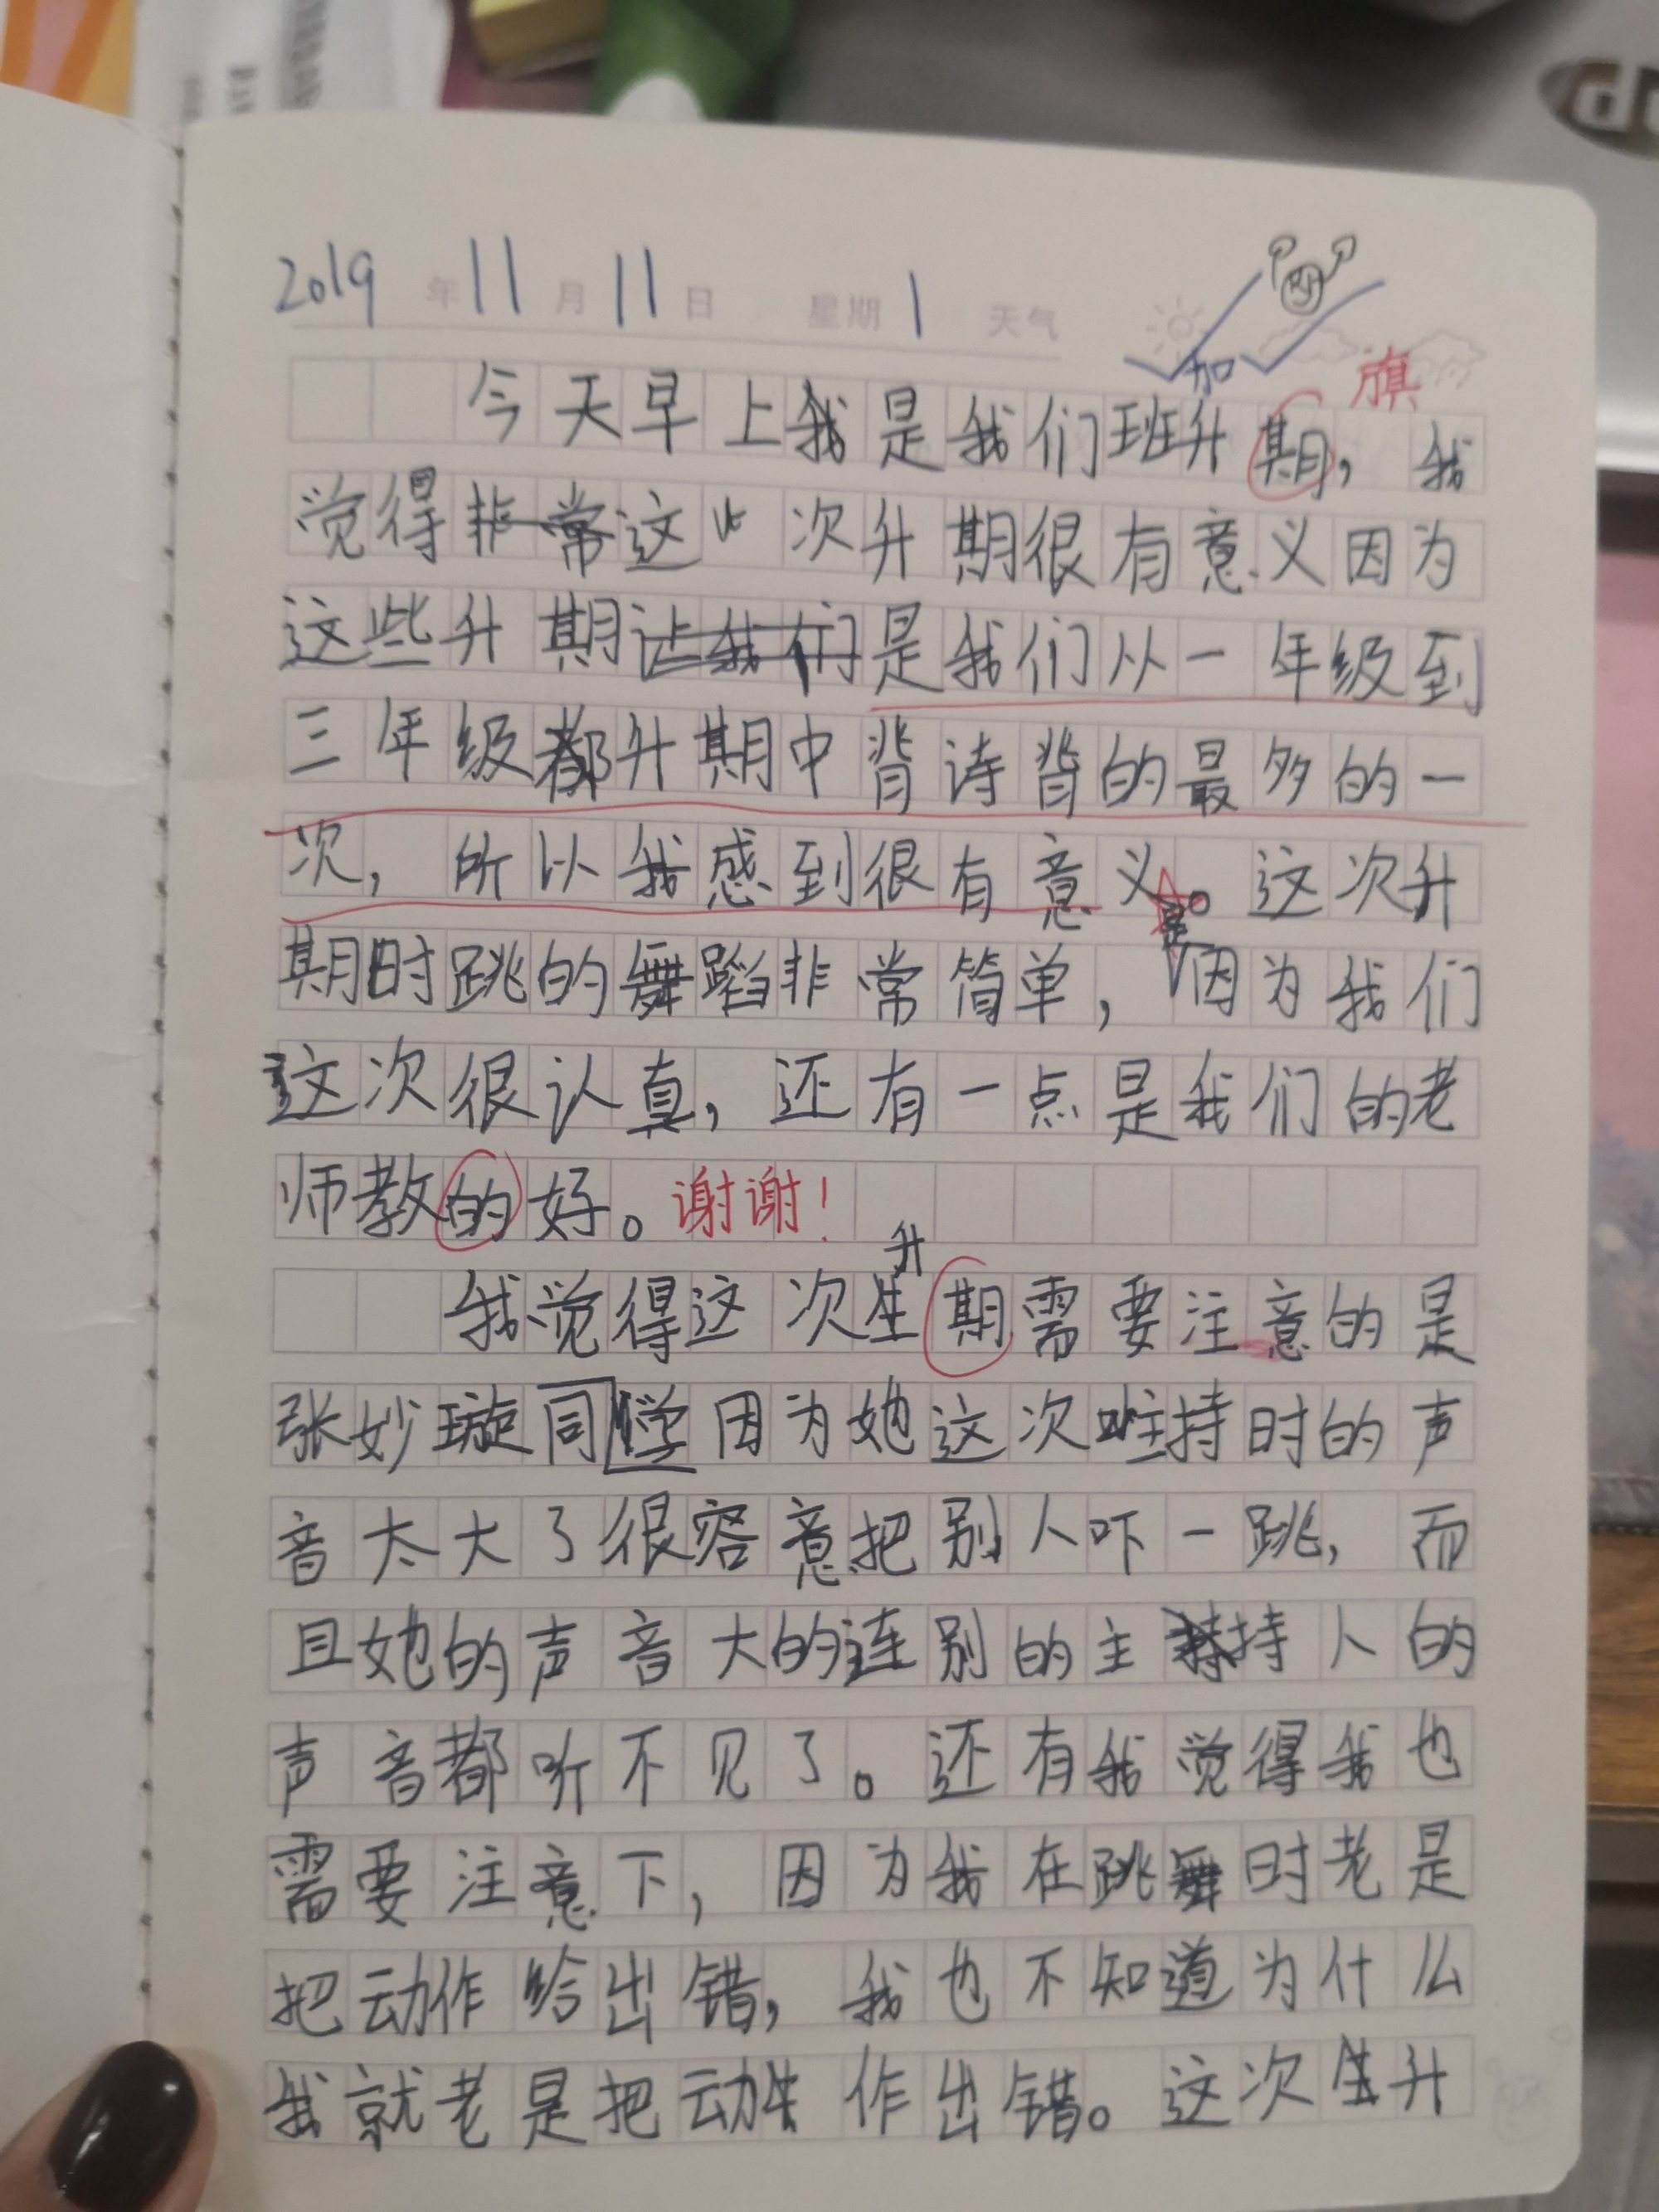 2019年11月11日 星期1 天气
加
旗
今天早上我是我们班升期，我
觉得非常这次升期很有意义因为
这些升期让我们是我们从一年级到
三年级都升期中背诗背的最多的一
次，所以我感到很有意义。这次升
是
期时跳的舞蹈非常简单，因为我们
这次很认真，还有一点是我们的老
师教的好。谢谢！
升
我觉得这次生期需要注意的是
张妙璇同学因为她这次主持时的声
音太大了很容意把别人吓一跳，而
且她的声音大的连别的主持人的
声音都听不见了。还有我觉得我也
需要注意下，因为我在跳舞时老是
把动作给出错，我也不知道为什么
我就老是把动作出错。这次生升